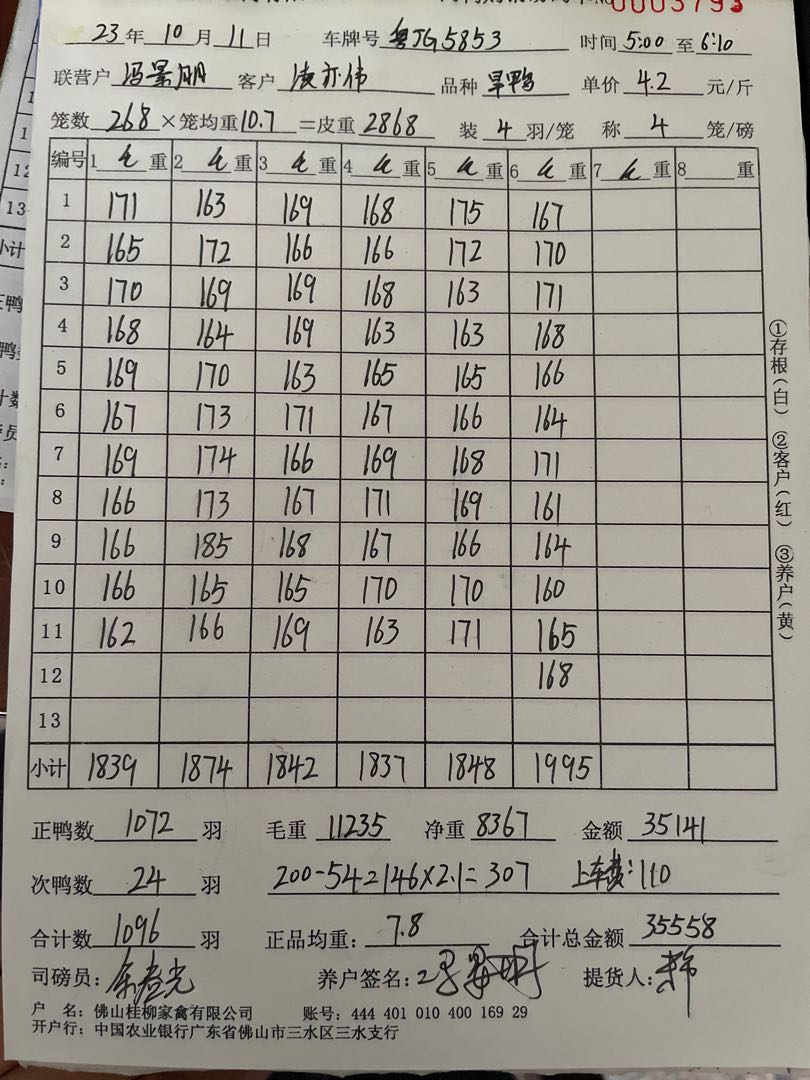 0003793
23年10月11日 车牌号 粤JG5853 时间 5:00 至 6:10
联营户 冯景明 客户 凌亦伟 品种 旱鸭 单价 4.2 元/斤
笼数 268 ×笼均重 10.7 =皮重 2868 装 4 羽/笼 称 4 笼/磅
编号 1 毛 重 2 毛 重 3 毛 重 4 毛 重 5 毛 重 6 毛 重 7 毛 重 8 重
1 171 163 169 168 175 167
2 165 172 166 166 172 170
3 170 169 169 168 163 171
4 168 164 169 163 163 168
5 169 170 163 165 165 166
6 167 173 171 167 166 164
7 169 174 166 169 168 171
8 166 173 167 171 169 161
9 166 185 168 167 166 164
10 166 165 165 170 170 160
11 162 166 169 163 171 165
12 168
13
小计 1839 1874 1842 1837 1848 1995
①存根(白) ②客户(红) ③养户(黄)
正鸭数 1072 羽 毛重 11235 净重 8367 金额 35141
次鸭数 24 羽 200-54=146×2.1=307 上车费:110
合计数 1096 羽 正品均重: 7.8 合计总金额 35558
司磅员: 养户签名: 提货人:
户 名: 佛山桂柳家禽有限公司 账号: 444 401 010 400 169 29
开户行: 中国农业银行广东省佛山市三水区三水支行